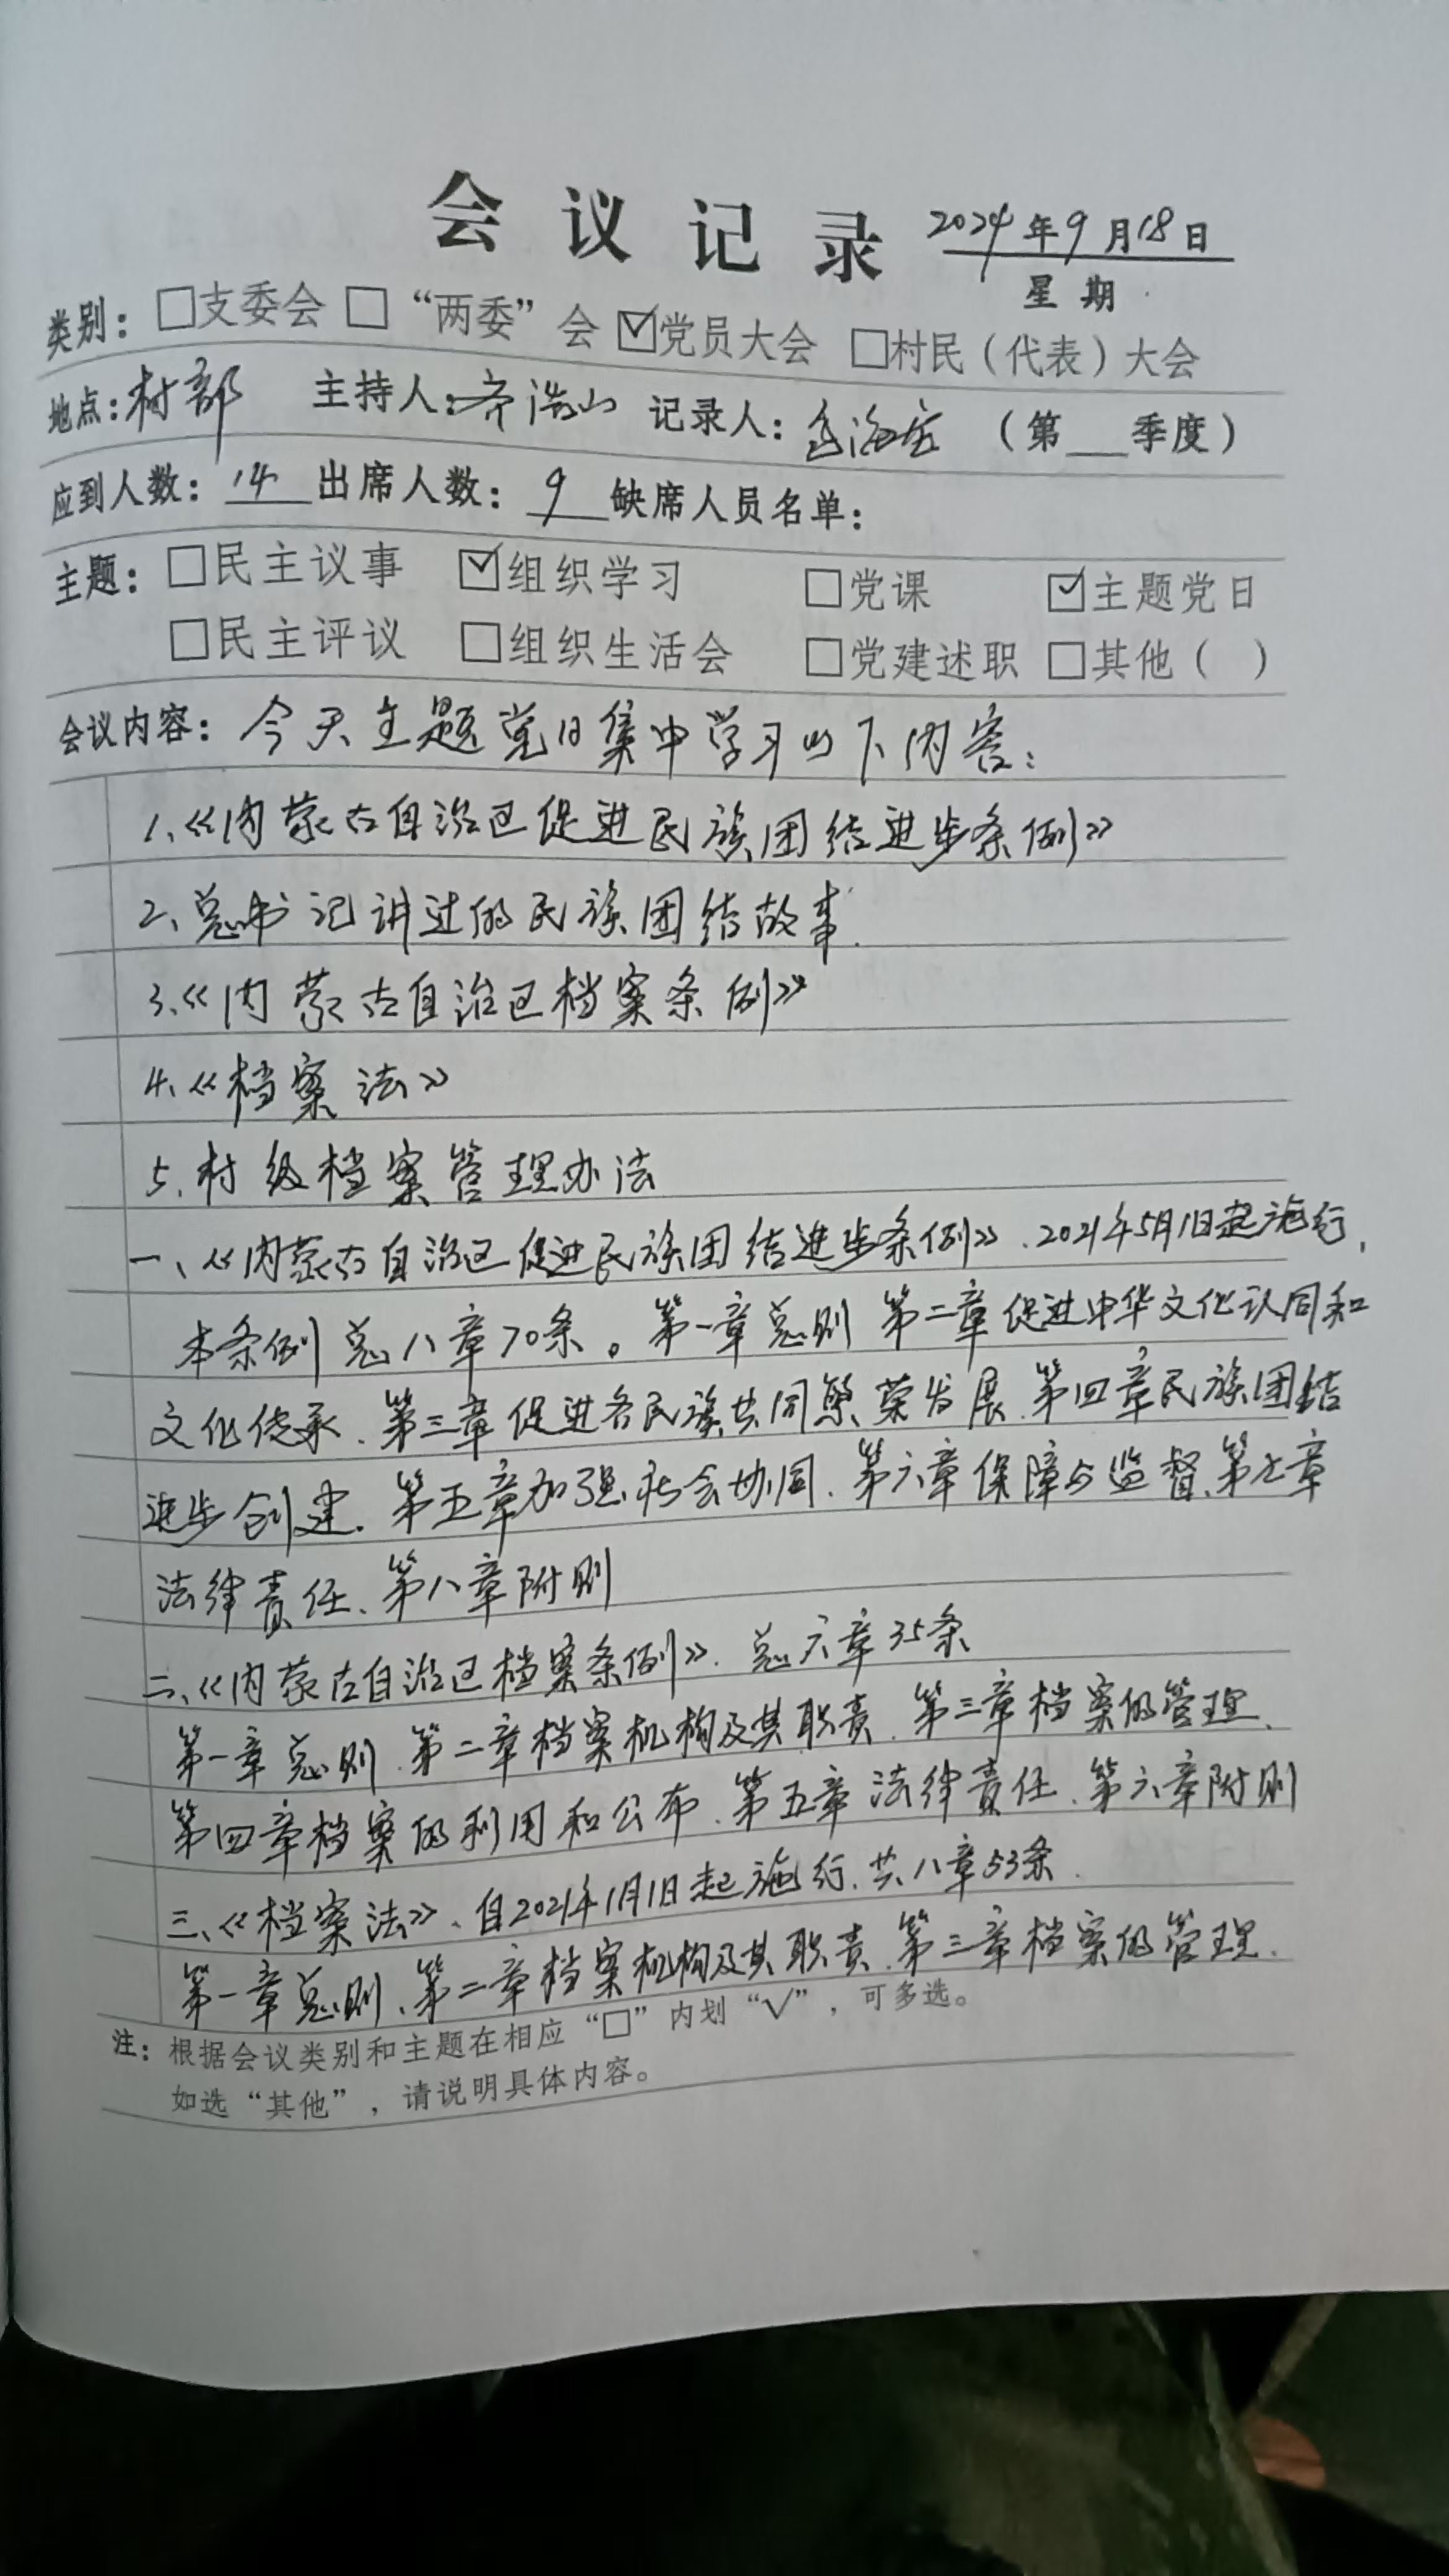 会议记录 2024年9月18日
星期
类别：□支委会 □“两委”会 ☑党员大会 □村民（代表）大会
地点：村部 主持人：齐浩山 记录人：海宏 （第 季度）
应到人数：14 出席人数：9 缺席人员名单：
主题：□民主议事 ☑组织学习 □党课 ☑主题党日
□民主评议 □组织生活会 □党建述职 □其他（ ）
会议内容：今天主题党日集中学习以下内容：
1、《内蒙古自治区促进民族团结进步条例》
2、总书记讲过的民族团结故事.
3、《内蒙古自治区档案条例》
4、《档案法》
5、村级档案管理办法
一、《内蒙古自治区促进民族团结进步条例》、2021年5月1日起施行，
本条例总八章70条。第一章总则 第二章促进中华文化认同和
文化传承、第三章促进各民族共同繁荣发展、第四章民族团结
进步创建、第五章加强社会协同、第六章保障与监督、第七章
法律责任、第八章附则
二、《内蒙古自治区档案条例》、总六章35条
第一章总则、第二章档案机构及其职责、第三章档案的管理、
第四章档案的利用和公布、第五章法律责任、第六章附则
三、《档案法》、自2021年1月1日起施行、共八章53条.
第一章总则、第二章档案机构及其职责、第三章档案的管理、
注：根据会议类别和主题在相应“□”内划“√”，可多选。
如选“其他”，请说明具体内容。